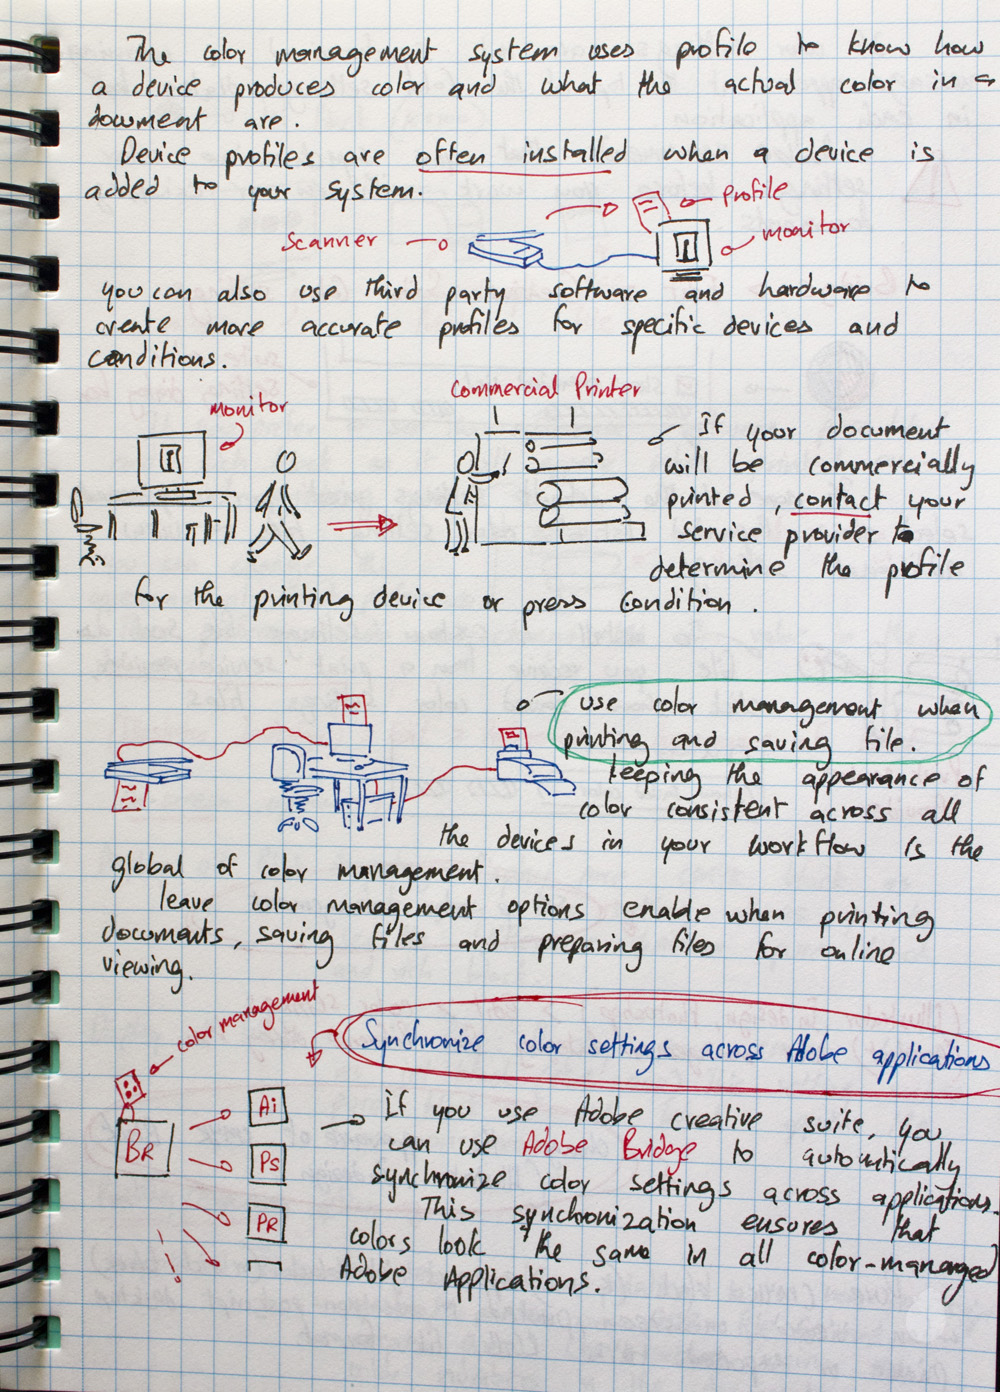 The color management system uses profile to know how
a device produces color and what the actual color in a
document are.
Device profiles are often installed when a device is
added to your system.
profile
scanner
monitor
you can also use third party software and hardware to
create more accurate profiles for specific devices and
conditions.
monitor
commercial Printer
If your document
will be commercially
printed, contact your
service provider to
determine the profile
for the printing device or press condition.
use color management when
printing and saving file.
keeping the appearance of
color consistent across all
the devices in your workflow is the
global of color management.
leave color management options enable when printing
documents, saving files and preparing files for online
viewing.
color management
Synchronize color settings across Adobe applications
BR
Ai
Ps
PR
If you use Adobe creative suite, you
can use Adobe Bridge to automatically
synchronize color settings across applications.
This synchronization ensures that
colors look the same in all color-managed
Adobe Applications.